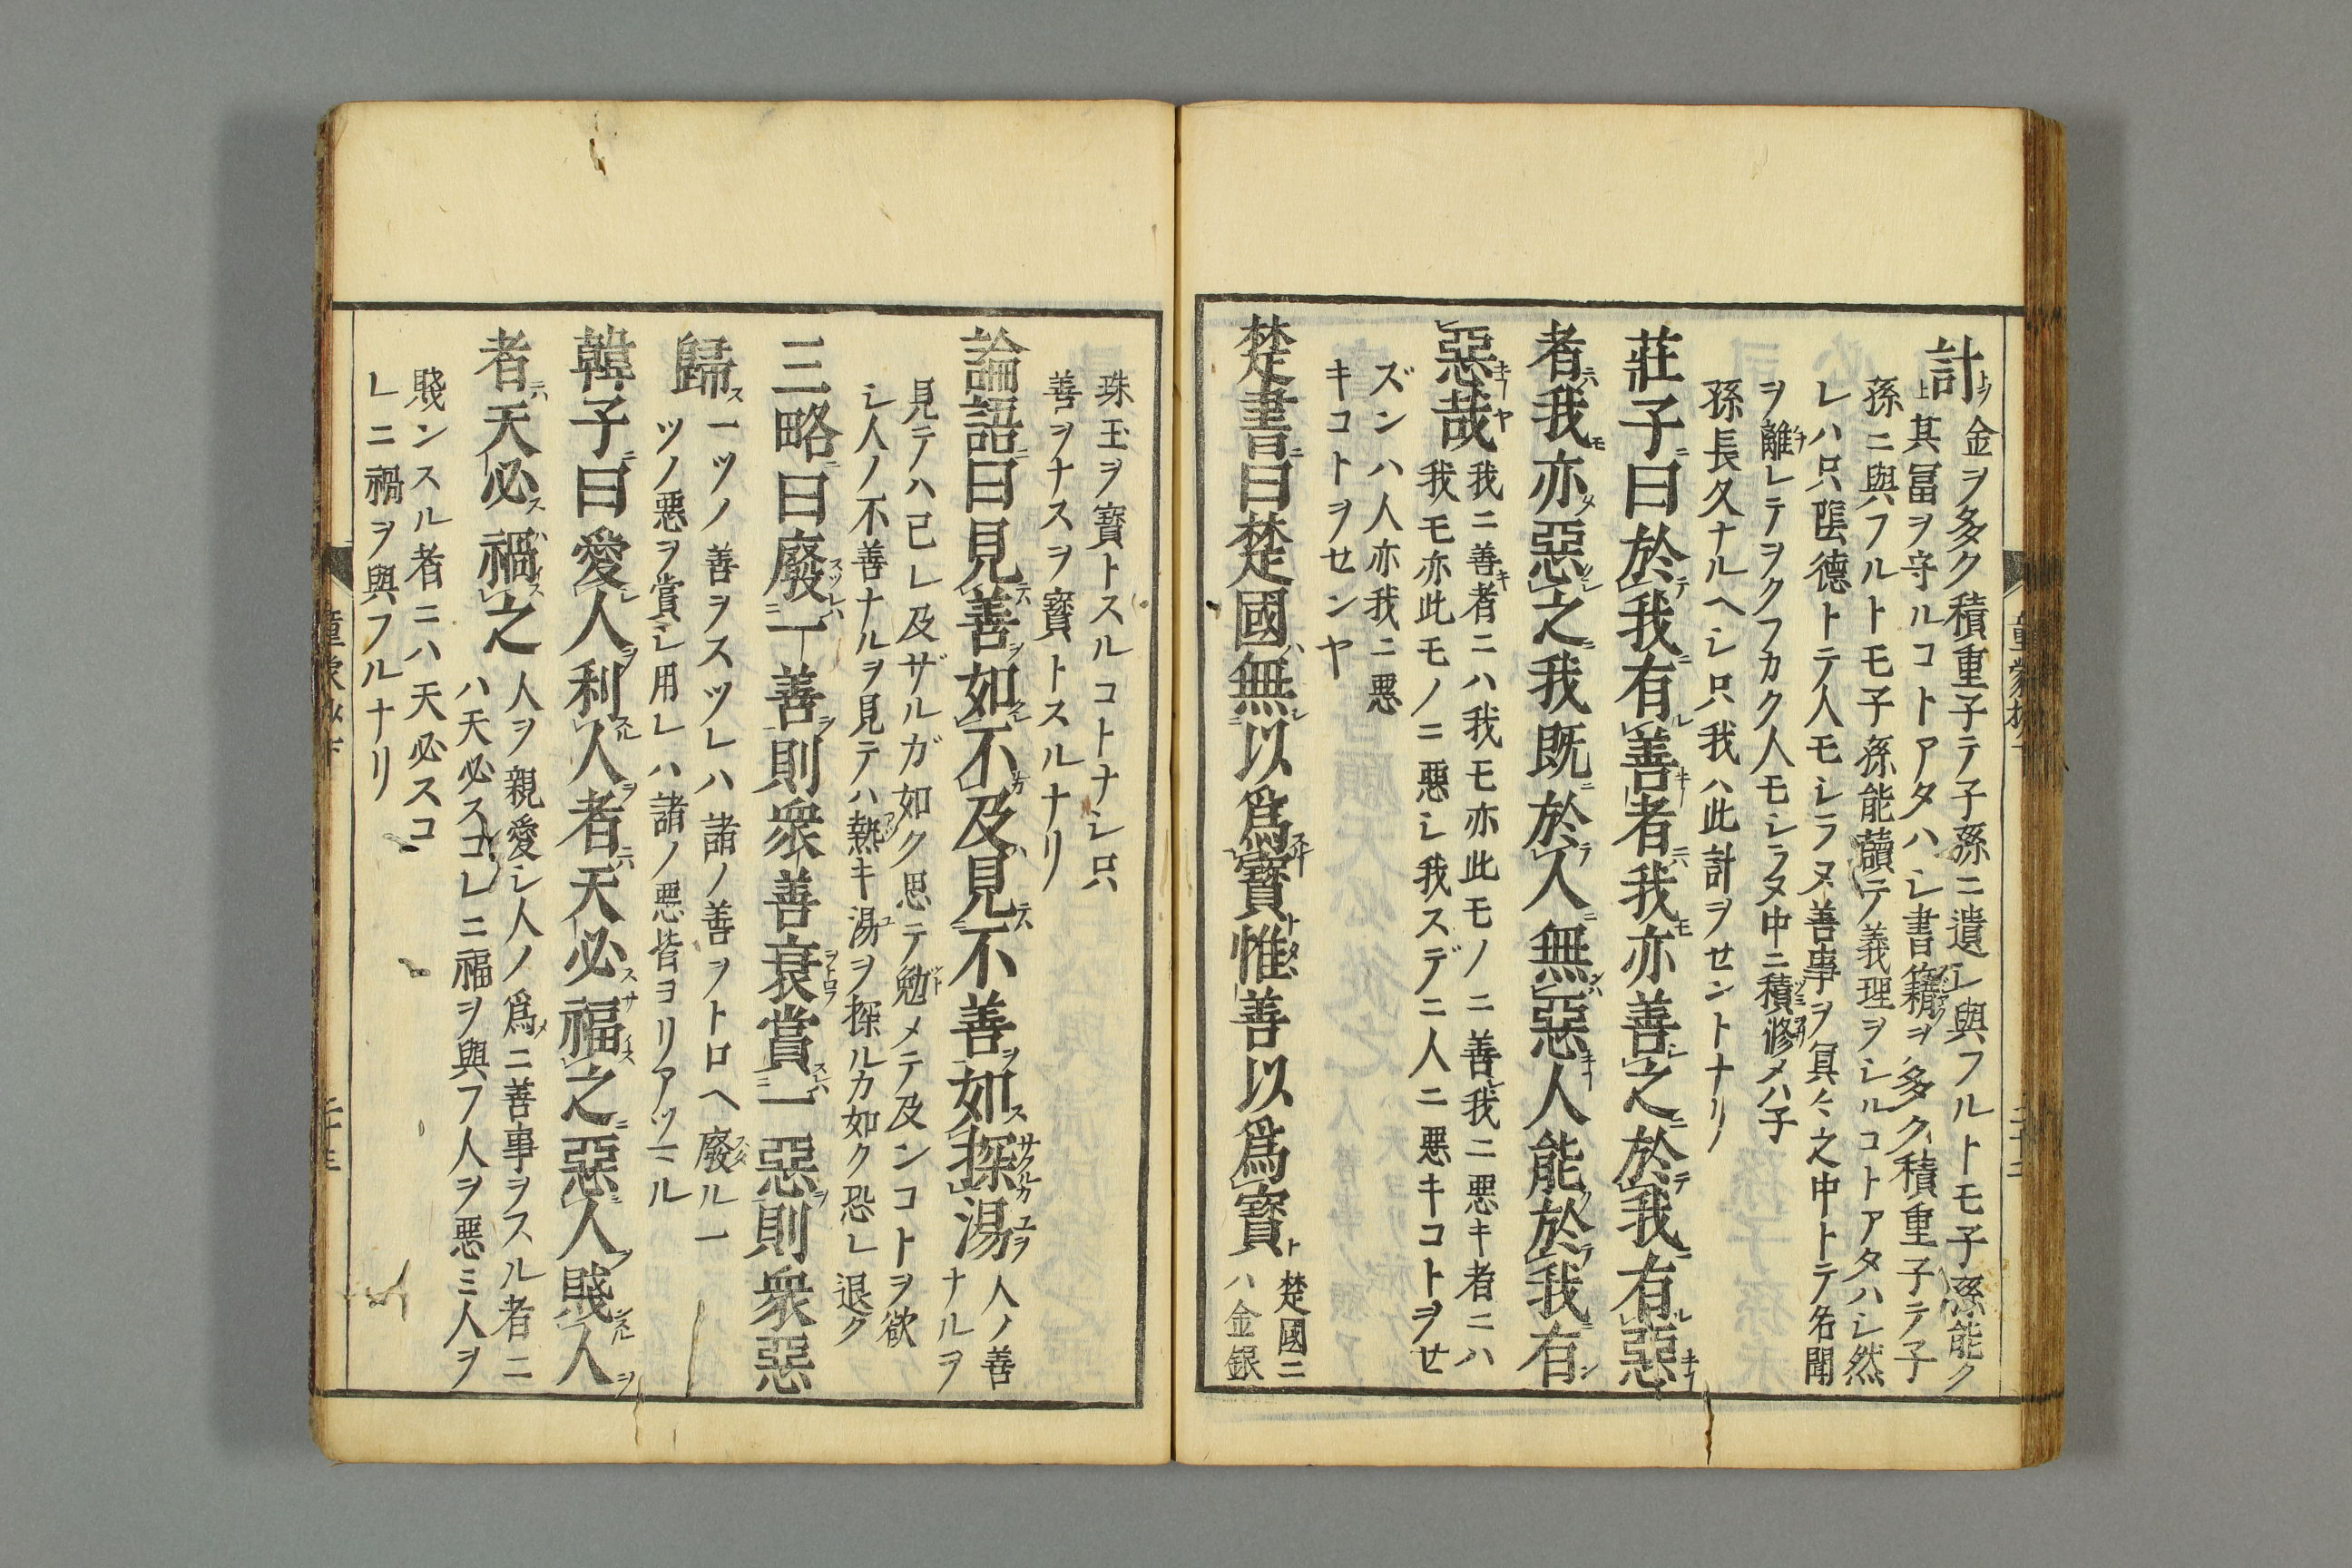 計
金ヲ多ク積重子テ子孫ニ遺レ與フルトモ子孫能ク
其冨ヲ守ルコトアタハレ書籍ヲ多ク積重子テ子
孫ニ與フルトモ子孫能讀テ義理ヲシルコトアタハシ然
レハ只陰德トテ人モシラヌ善事ヲ冥々之中トテ名聞
ヲ離レテヲクフカク人モシラヌ中ニ積修メハ子
孫長久ナルヘシ只我ハ此計ヲセントナリ
莊子曰於我有善者我亦善之於我有惡
者我亦惡之我既於人無惡人能於我有
惡哉
我ニ善者ニハ我モ亦此モノニ善我ニ悪キ者ニハ
我モ亦此モノニ惡シ我スデニ人ニ悪キコトヲせ
ズンハ人亦我ニ悪
キコトヲせンヤ
楚書曰楚國無以爲寶惟善以爲寶
楚國ニ
ハ金銀
珠玉ヲ寶トスルコトナシ只
善ヲナスヲ寶トスルナリ
論語曰見善如不及見不善如探湯
人ノ善
ナルヲ
見テハ己レ及ザルガ如ク思テ勉メテ及ンコトヲ欲
シ人ノ不善ナルヲ見テハ熱キ湯ヲ探ルカ如ク恐レ退ク
三略曰廢一善則衆善衰賞一惡則衆惡
歸
一ツノ善ヲスツレハ諸ノ善ヲトロヘ廢ル一
ツノ悪ヲ賞シ用レハ諸ノ悪皆ヨリアツマル
韓子曰愛人利人者天必福之惡人賤人
者天必禍之
人ヲ親愛シ人ノ爲ニ善事ヲスル者ニ
ハ天必スコレニ福ヲ與フ人ヲ悪ミ人ヲ
賤ンスル者ニハ天必スコ
レニ禍ヲ與フルナリ